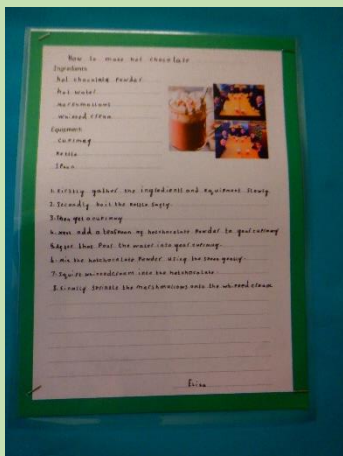 How to make hot chocolate
Ingredients
hot chocolate powder
hot water
marshmallows
whipped cream
Equipment
cup/mug
kettle
spoon
1. Firstly gather the ingredients and equipment slowly.
2. Secondly boil the kettle safly.
3. Then get a cup/mug
4. next add a teaspoon of hotchocolate powder to your cup/mug
5. After that Pour the water into your cup/mug.
6. Mix the hotchocolate Powder using the spoon gently.
7. Squirt whipped cream into the hotchocolate.
8. Finally sprinkle the marshmallows onto the whipped cream
Eliza